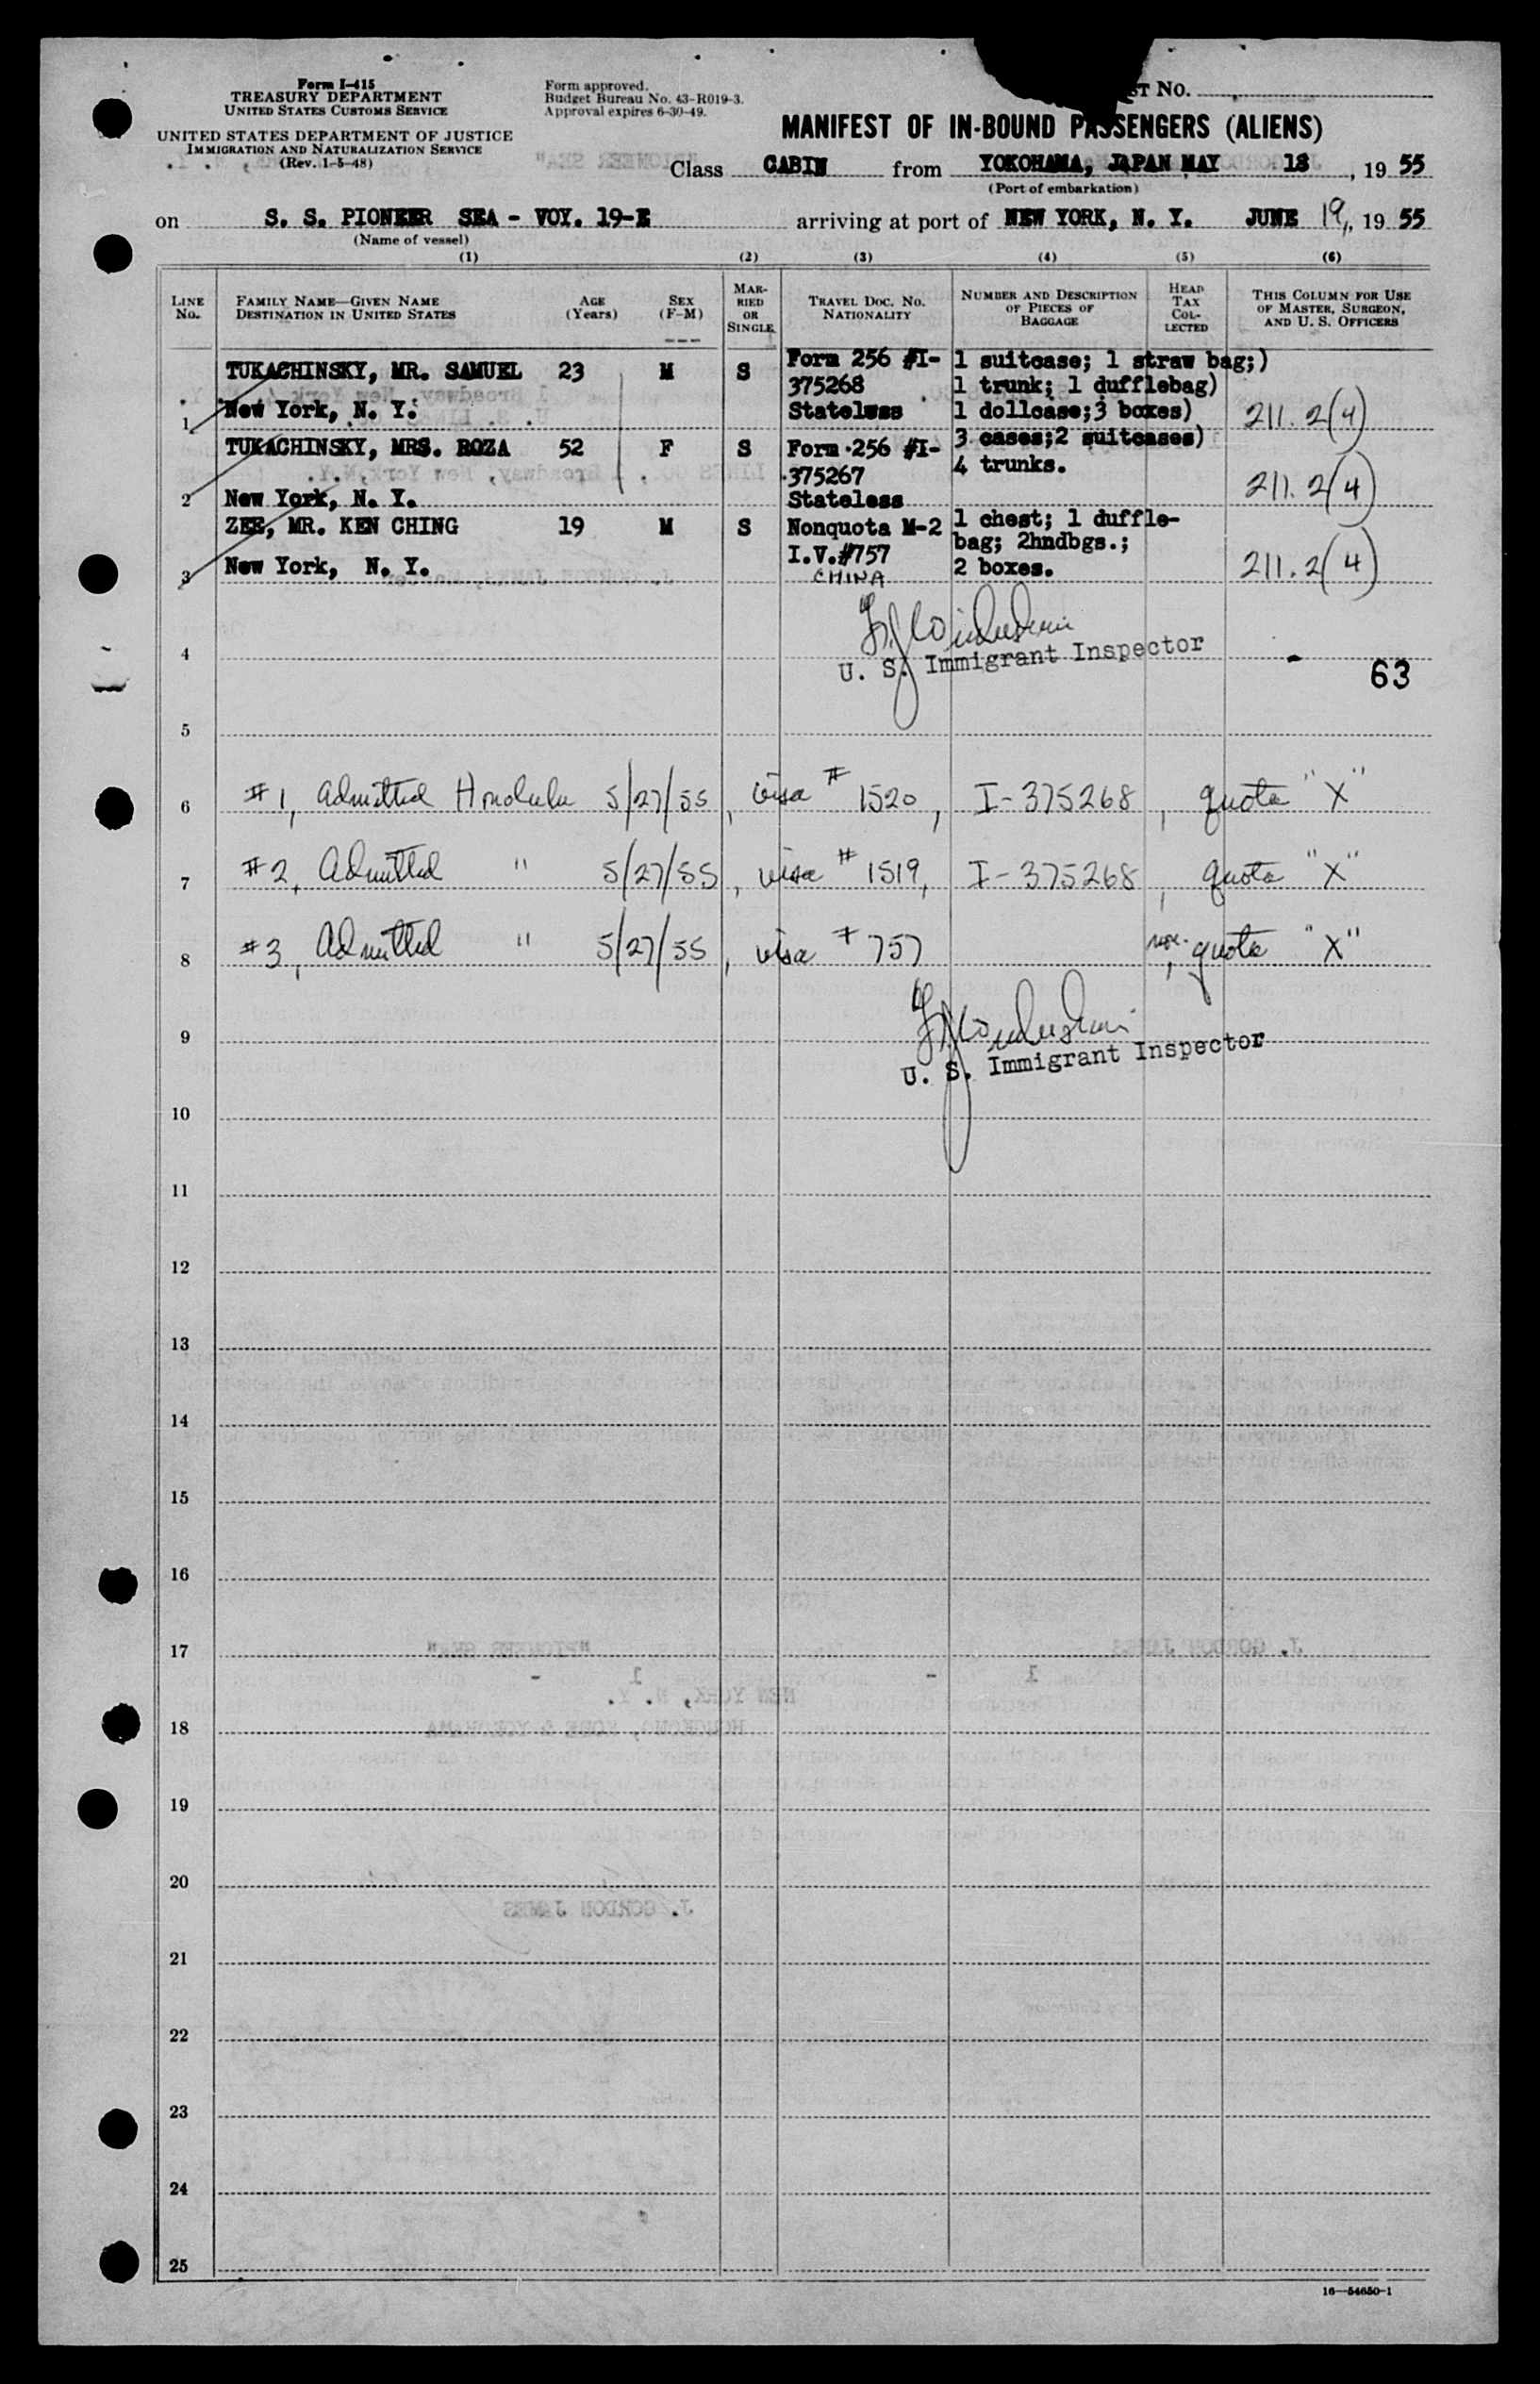 Form I-415
TREASURY DEPARTMENT
UNITED STATES CUSTOMS SERVICE
UNITED STATES DEPARTMENT OF JUSTICE
IMMIGRATION AND NATURALIZATION SERVICE
(Rev. 1-5-48)
Form approved.
Budget Bureau No. 43-R019-3.
Approval expires 6-30-49.
No.
MANIFEST OF IN-BOUND PASSENGERS (ALIENS)
Class CABIN from YOKOHAMA, JAPAN MAY 18, 1955
(Port of embarkation)
on S. S. PIONEER SEA - VOY. 19-E arriving at port of NEW YORK, N. Y. JUNE 19, 1955
(Name of vessel)
(1) (2) (3) (4) (5) (6)
LINE NO. FAMILY NAME—GIVEN NAME DESTINATION IN UNITED STATES AGE (Years) SEX (F-M) MARRIED OR SINGLE TRAVEL DOC. NO. NATIONALITY NUMBER AND DESCRIPTION OF PIECES OF BAGGAGE HEAD TAX COLLECTED THIS COLUMN FOR USE OF MASTER, SURGEON, AND U. S. OFFICERS
TUKACHINSKY, MR. SAMUEL 23 M S Form 256 #I- 1 suitcase; 1 straw bag;)
375268 1 trunk; 1 dufflebag)
1 New York, N. Y. Stateless 1 dollcase;3 boxes) 211.2(4)
TUKACHINSKY, MRS. ROZA 52 F S Form 256 #I- 3 cases;2 suitcases)
375267 4 trunks.
2 New York, N. Y. Stateless 211.2(4)
ZEE, MR. KEN CHING 19 M S Nonquota M-2 1 chest; 1 duffle-
I.V.#757 bag; 2hndbgs.;
3 New York, N. Y. CHINA 2 boxes. 211.2(4)
4 U. S. Immigrant Inspector
63
5
6 #1, admitted Honolulu 5/27/55, visa # 1520, I-375268, quota "X"
7 #2, Admitted " 5/27/55, visa # 1519, I-375268, quota "X"
8 #3, Admitted " 5/27/55, visa # 757 non-quota "X"
9
U. S. Immigrant Inspector
10
11
12
13
14
15
16
17
18
19
20
21
22
23
24
25
16—54650-1